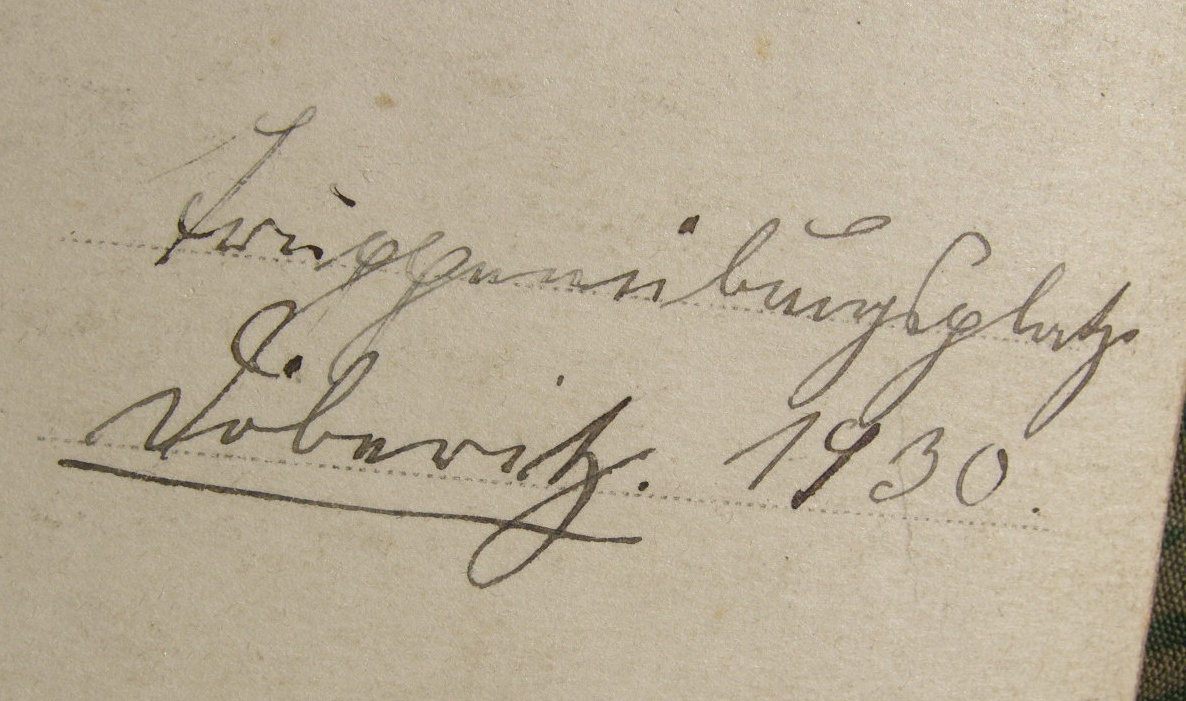 Truppenübungsplatz
Döberitz. 1930.